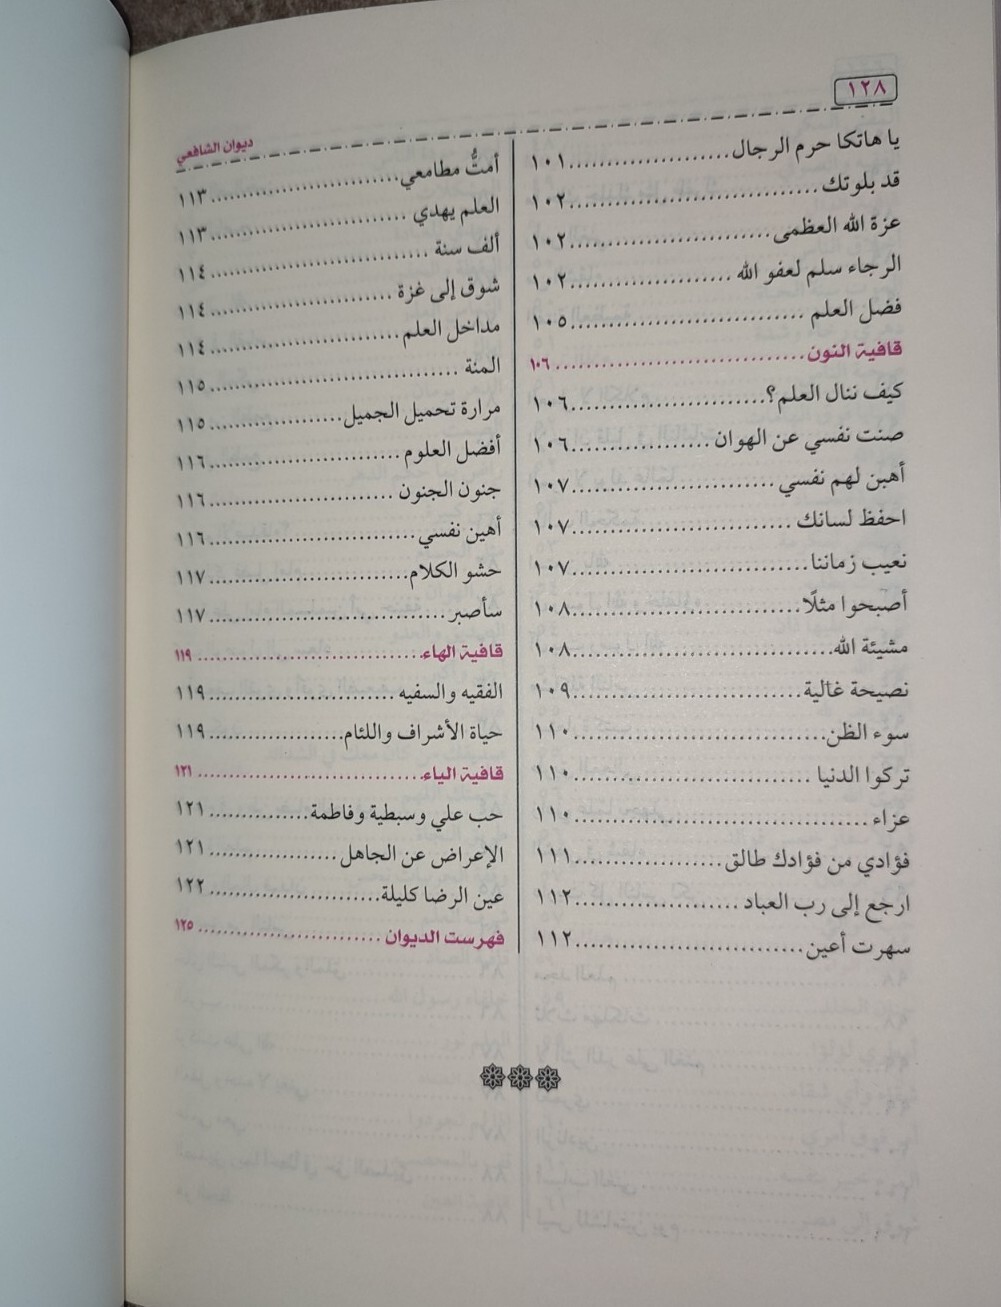 ١٢٨
ديوان الشافعي
يا هاتكا حرم الرجال ..................... ١٠١
قد بلوتك ..................... ١٠٢
عزة الله العظمى ..................... ١٠٢
الرجاء سلم لعفو الله ..................... ١٠٢
فضل العلم ..................... ١٠٥
قافية النون ..................... ١٠٦
كيف ننال العلم؟ ..................... ١٠٦
صنت نفسي عن الهوان ..................... ١٠٦
أهين لهم نفسي ..................... ١٠٧
احفظ لسانك ..................... ١٠٧
نعيب زماننا ..................... ١٠٧
أصبحوا مثلًا ..................... ١٠٨
مشيئة الله ..................... ١٠٨
نصيحة غالية ..................... ١٠٩
سوء الظن ..................... ١١٠
تركوا الدنيا ..................... ١١٠
عزاء ..................... ١١٠
فؤادي من فؤادك طالق ..................... ١١١
ارجع إلى رب العباد ..................... ١١٢
سهرت أعين ..................... ١١٢
أمتُّ مطامعي ..................... ١١٣
العلم يهدي ..................... ١١٣
ألف سنة ..................... ١١٤
شوق إلى غزة ..................... ١١٤
مداخل العلم ..................... ١١٤
المنة ..................... ١١٥
مرارة تحميل الجميل ..................... ١١٥
أفضل العلوم ..................... ١١٦
جنون الجنون ..................... ١١٦
أهين نفسي ..................... ١١٦
حشو الكلام ..................... ١١٧
سأصبر ..................... ١١٧
قافية الهاء ..................... ١١٩
الفقيه والسفيه ..................... ١١٩
حياة الأشراف واللئام ..................... ١١٩
قافية الياء ..................... ١٢١
حب علي وسبطية وفاطمة ..................... ١٢١
الإعراض عن الجاهل ..................... ١٢١
عين الرضا كليلة ..................... ١٢٢
فهرست الديوان ..................... ١٢٥